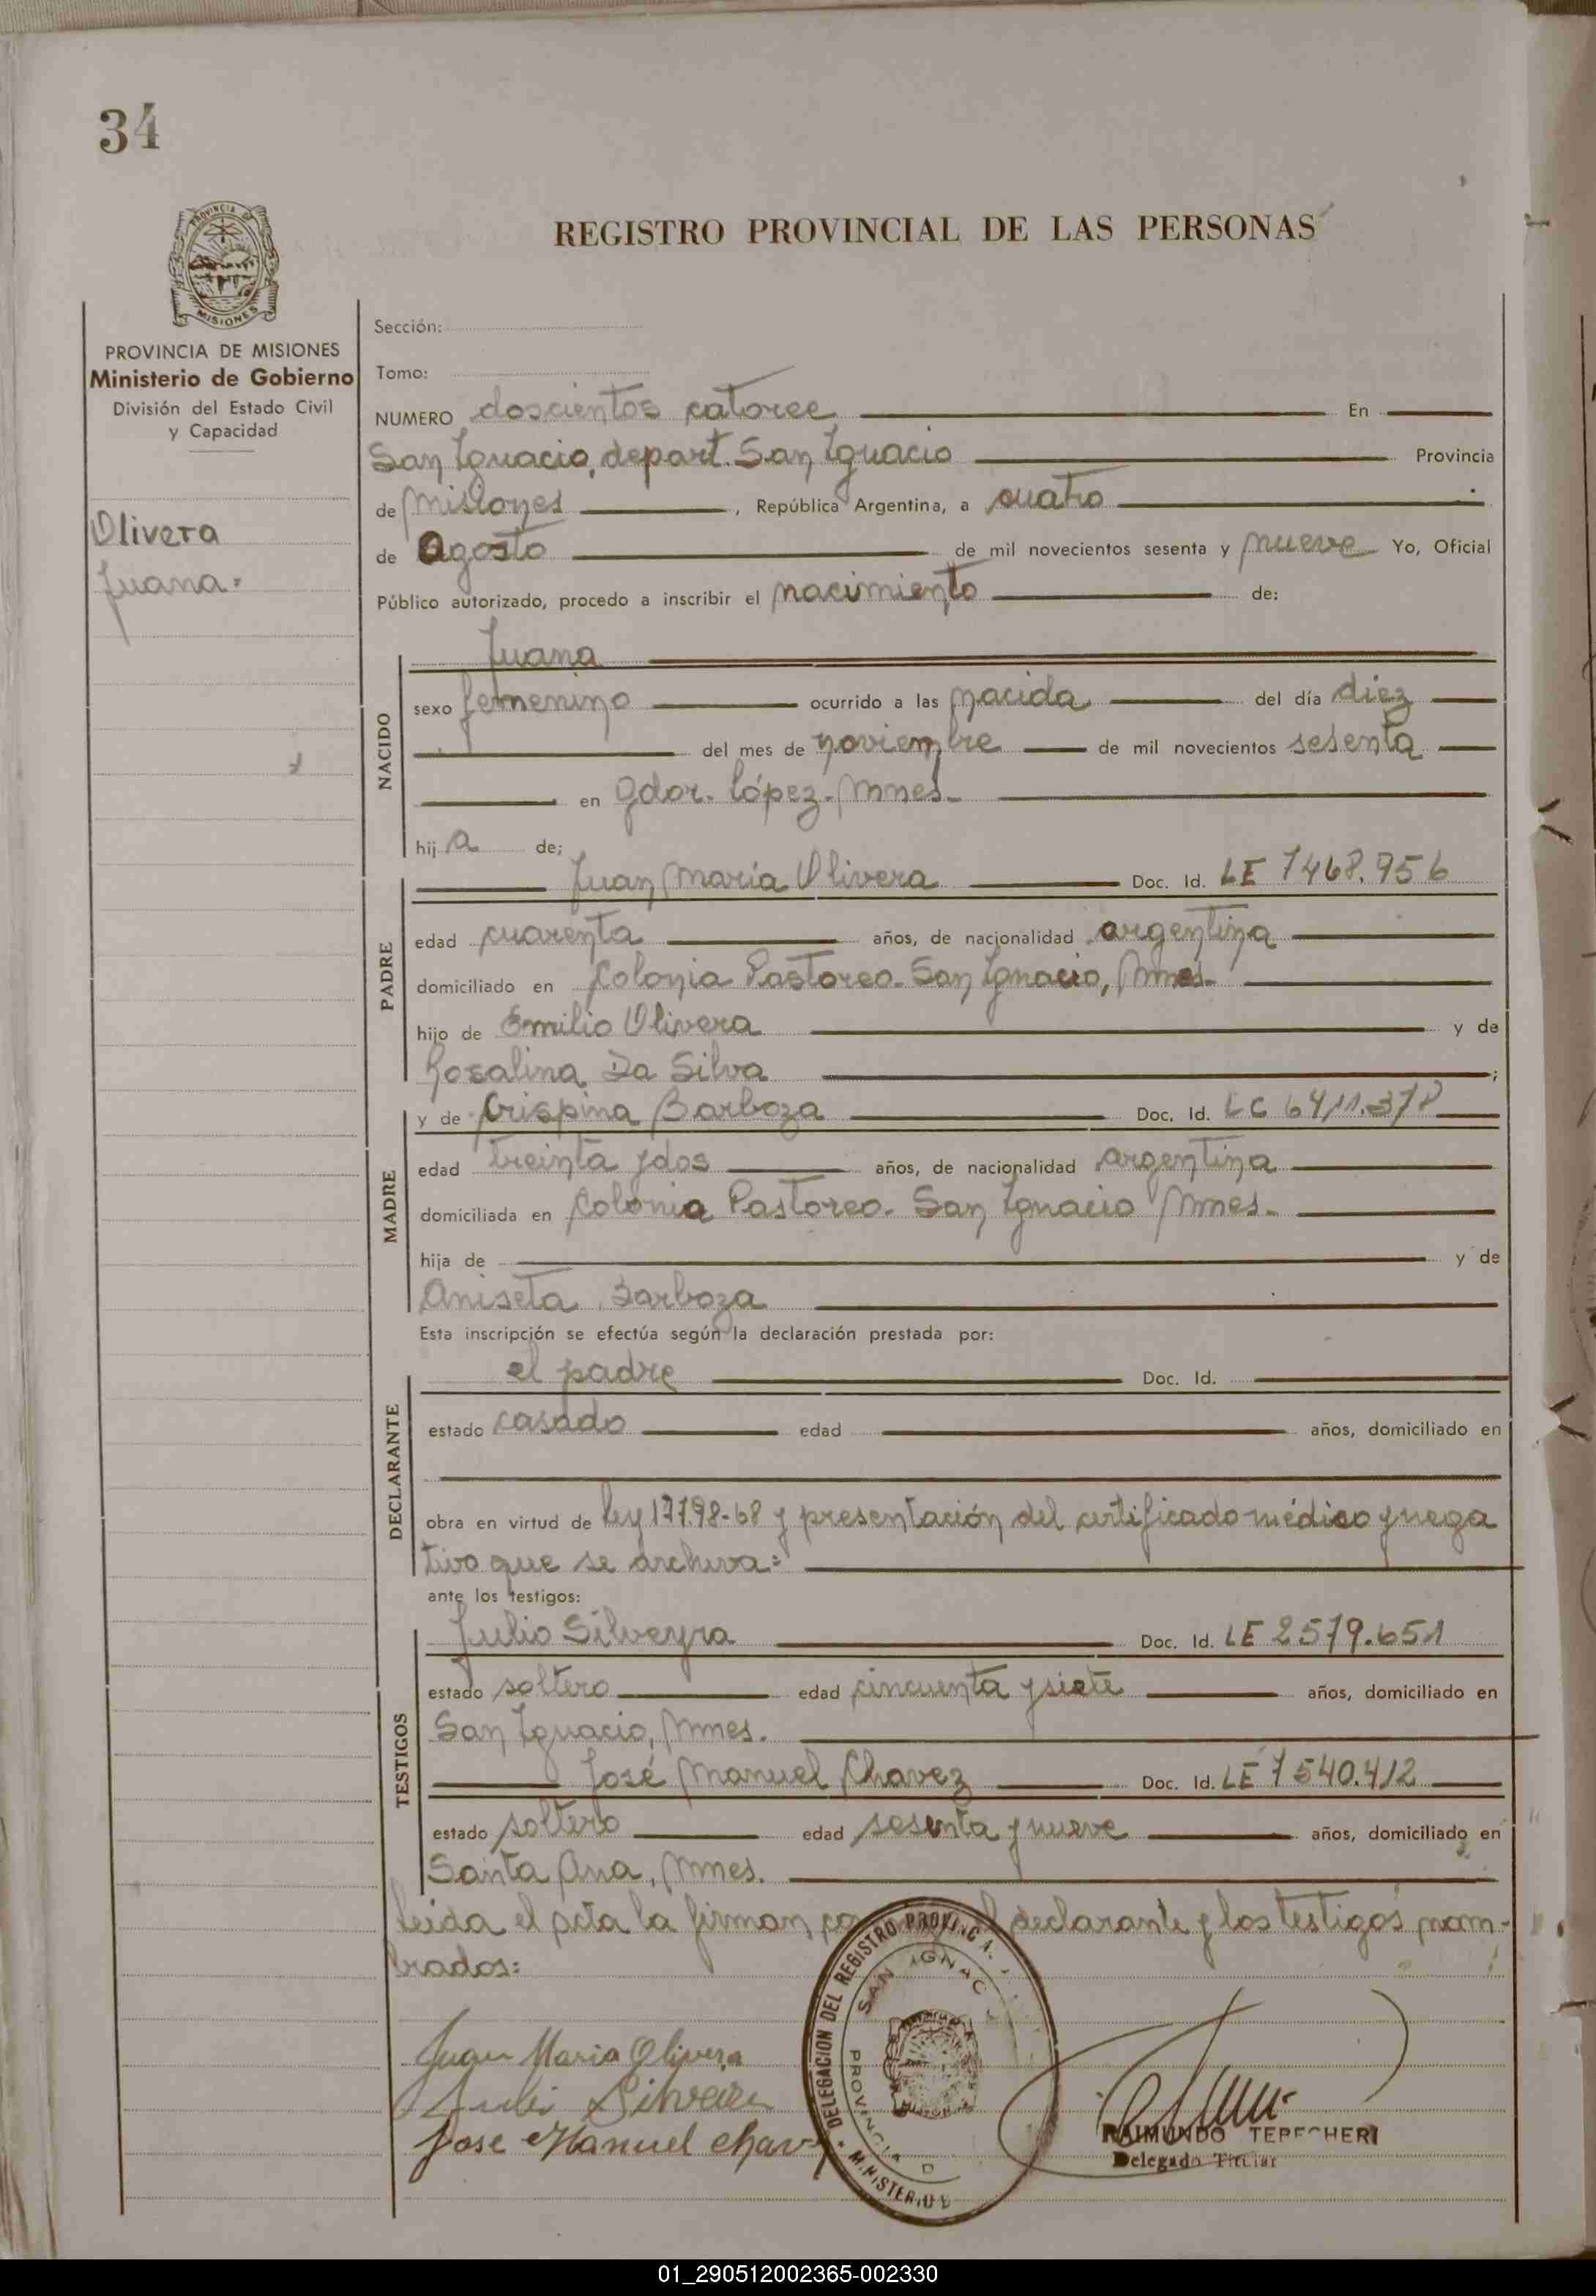 34
PROVINCIA DE MISIONES
REGISTRO PROVINCIAL DE LAS PERSONAS
PROVINCIA DE MISIONES
Ministerio de Gobierno
División del Estado Civil
y Capacidad
Olivera
Juana.
Sección:
Tomo:
NUMERO doscientos catorce En
San Ignacio, depart. San Ignacio Provincia
de Misiones, República Argentina, a cuatro
de Agosto de mil novecientos sesenta y nueve Yo, Oficial
Público autorizado, procedo a inscribir el nacimiento de:
NACIDO
Juana
sexo femenino ocurrido a las nacida del día diez
del mes de noviembre de mil novecientos sesenta
en Gdor. López. Mnes.
hij a de;
PADRE
Juan María Olivera Doc. Id. LE 7468.956
edad cuarenta años, de nacionalidad argentina
domiciliado en Colonia Pastoreo. San Ignacio, Mnes.
hijo de Emilio Olivera y de
Rosalina Da Silva ;
MADRE
y de Crispina Barboza Doc. Id. LC
edad treinta y dos años, de nacionalidad argentina
domiciliada en Colonia Pastoreo. San Ignacio Mnes.
hija de y de
Aniseta Barboza
Esta inscripción se efectúa según la declaración prestada por:
DECLARANTE
el padre Doc. Id.
estado casado edad años, domiciliado en
obra en virtud de ley 17798-68 y presentación del certificado médico y nega
tivo que se archiva:
ante los testigos:
TESTIGOS
Julio Silveyra Doc. Id. LE 2579.651
estado soltero edad cincuenta y siete años, domiciliado en
San Ignacio, Mnes.
José Manuel Chavez Doc. Id. LE 7540.412
estado soltero edad sesenta y nueve años, domiciliado en
Santa Ana, Mnes.
Leida el acta la firman declarante y los testigos nom-
brados:
Juan Maria Olivera
Silveira
Jose Manuel Chavez
DELEGACION DEL REGISTRO PROVINC
SAN IGNAC
PROVINCIA D
RAIMUNDO TEPECHERI
Delegado Titular
01_290512002365-002330